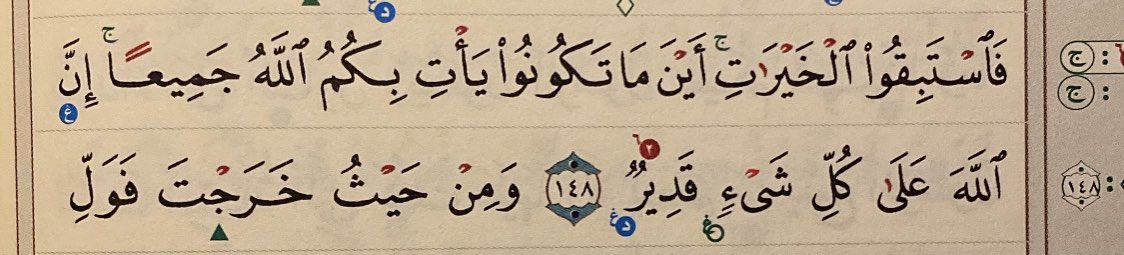 فَٱسۡتَبِقُوا۟ ٱلۡخَيۡرَٰتِۚ أَيۡنَ مَا تَكُونُوا۟ يَأۡتِ بِكُمُ ٱللَّهُ جَمِيعًاۚ إِنَّ
ٱللَّهَ عَلَىٰ كُلِّ شَىۡءٍ قَدِيرٌ ١٤٨ وَمِنۡ حَيۡثُ خَرَجۡتَ فَوَلِّ